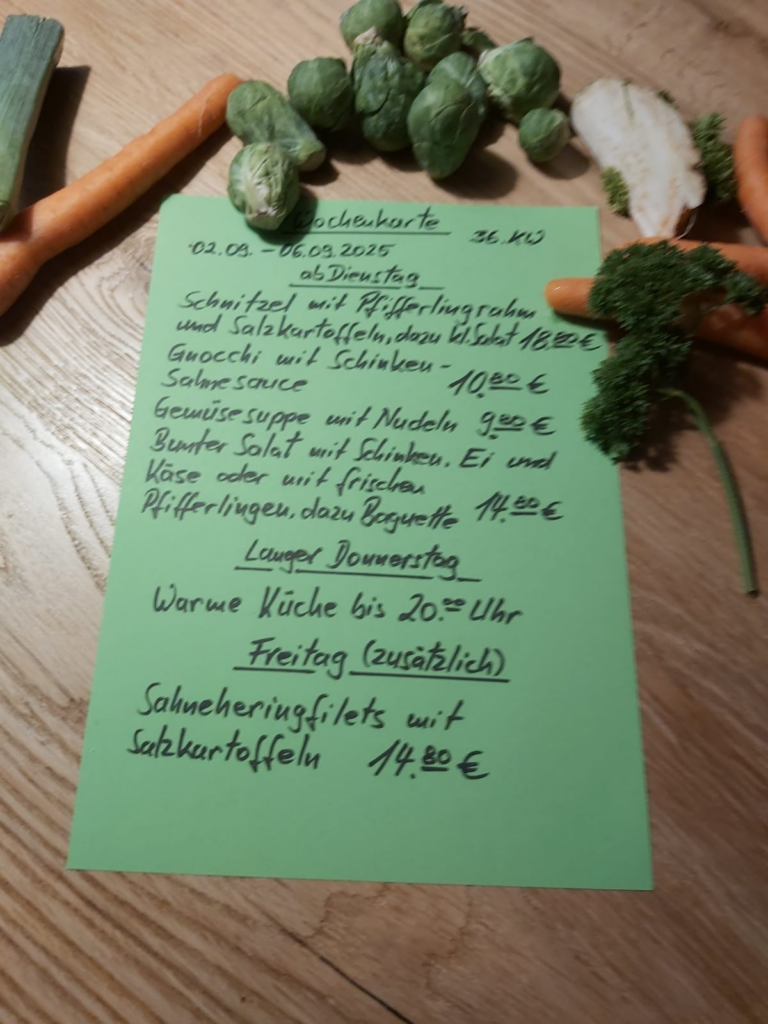 Wochenkarte 36. KW
02.09. – 06.09.2025
ab Dienstag
Schnitzel mit Pfifferlingrahm
und Salzkartoffeln, dazu kl. Salat 18.80 €
Gnocchi mit Schinken-
Sahnesauce 10.80 €
Gemüsesuppe mit Nudeln 9.80 €
Bunter Salat mit Schinken, Ei und
Käse oder mit frischen
Pfifferlingen, dazu Baguette 14.80 €
Langer Donnerstag
Warme Küche bis 20.00 Uhr
Freitag (zusätzlich)
Sahneheringfilets mit
Salzkartoffeln 14.80 €